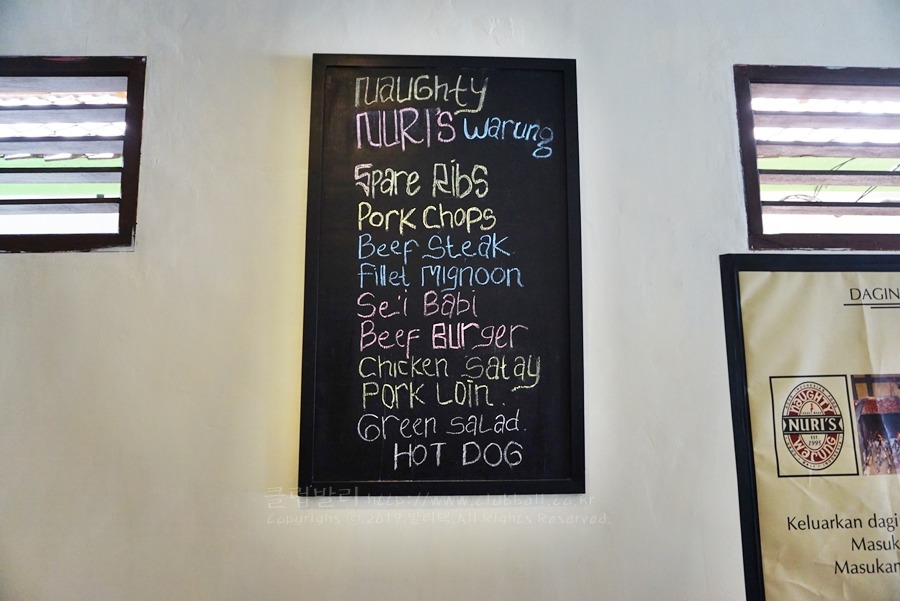 Naughty
NURI'S warung
Spare Ribs
Pork Chops
Beef Steak
Fillet Mignoon
Se'i Babi
Beef Burger
Chicken Satay
Pork Loin.
Green Salad.
HOT DOG
DAGIN
NAUGHTY
NURI'S
EST
1995
WARUNG
Keluarkan dagi
Masuk
Masukan
클럽발리 http://www.clubbali.co.kr
All Rights Reserved.